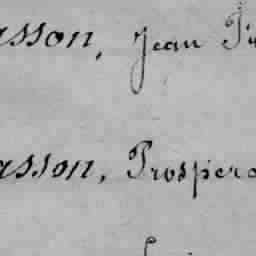 asson, Jean Pi
asson, Prosper